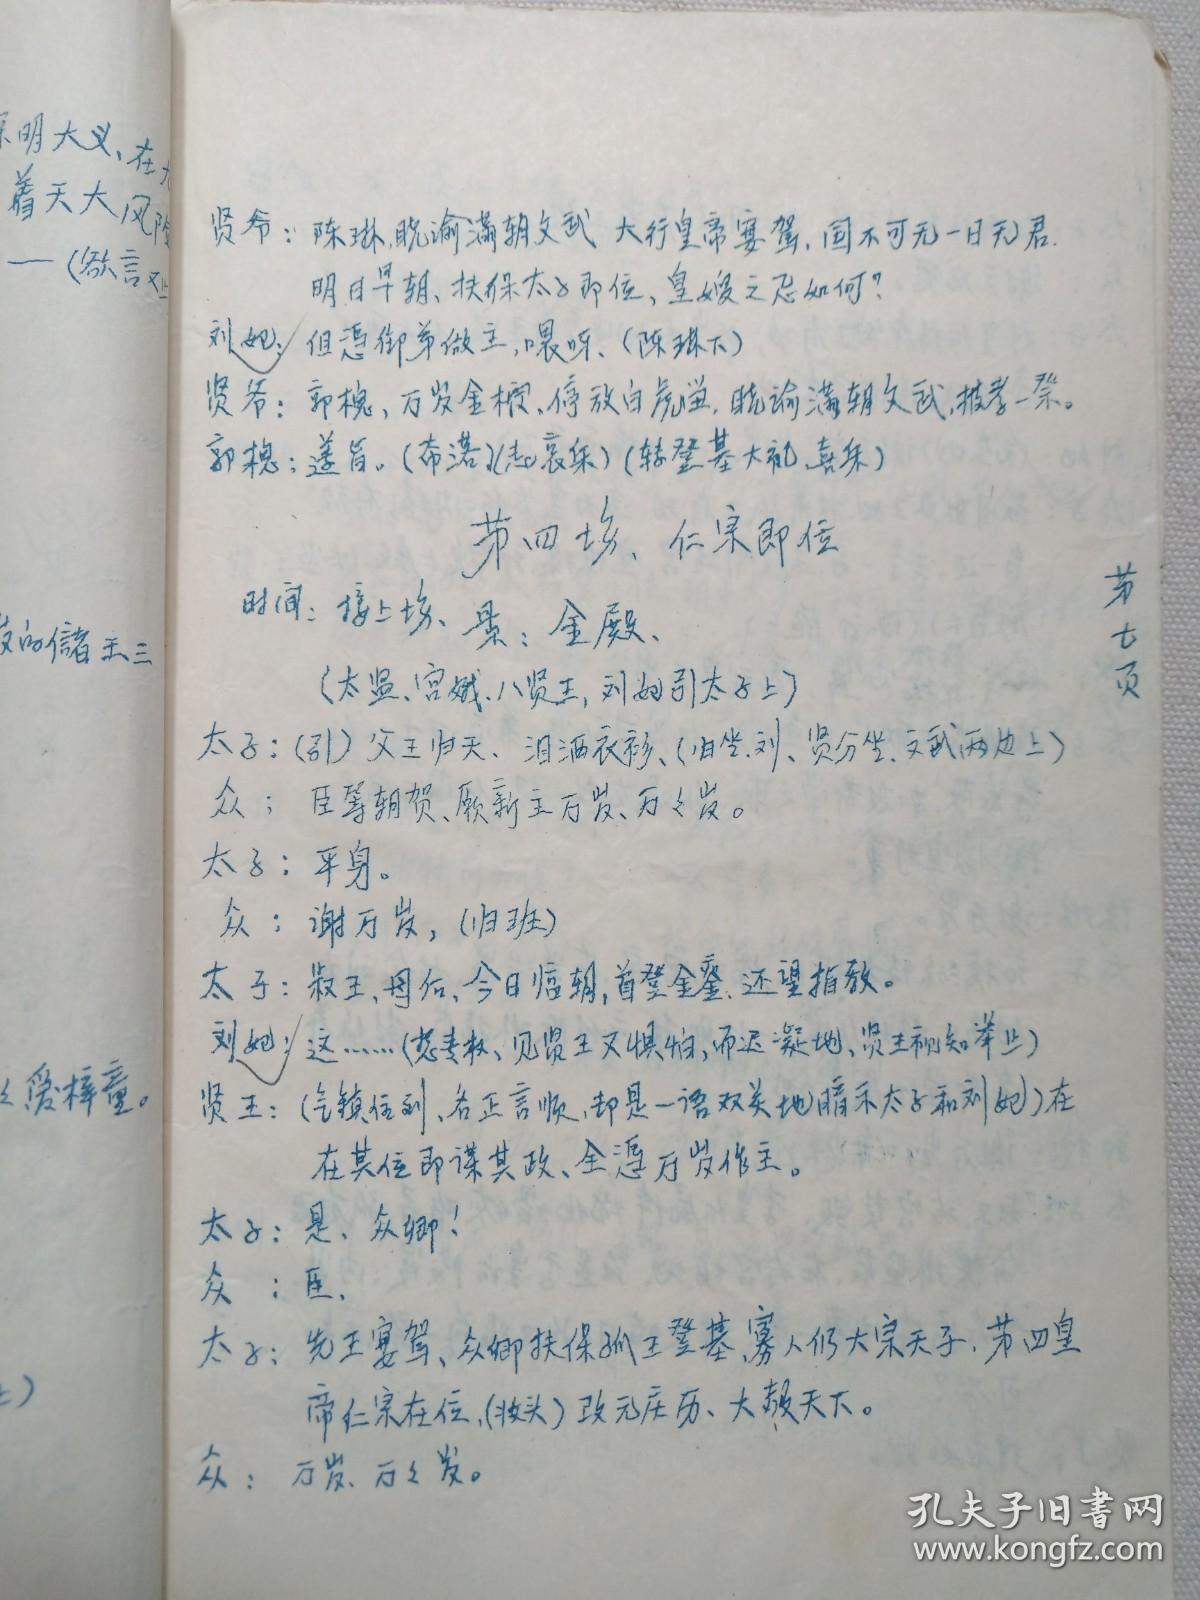 深明大义、在
着天大风险
——(欲言又止
的储主三
爱梓童。
上)
贤爷：陈琳，晓谕满朝文武 大行皇帝宴驾，国不可无一日无君.
明日早朝、扶保太子即位、皇嫂之意如何？
刘妃：但凭御弟做主，喂呀、(陈琳下)
贤爷：郭槐，万岁金棺、停放白虎堂，晓谕满朝文武，披孝一祭。
郭槐：遵旨。(布落)(志哀乐)(转登基大礼，喜乐)
第四场、仁宗即位
时间：接上场、景：金殿、
(太监、宫娥、八贤王，刘妃引太子上)
太子：(引)父王归天、泪洒衣衫、(归坐.刘、贤分坐.文武两边上)
众：臣等朝贺、愿新主万岁、万々岁。
太子：平身。
众：谢万岁，(归班)
太子：叔王、母后、今日临朝，首登金銮、还望指教。
刘妃：这……(想专权、见贤王又惧怕，而迟凝地、贤王视知举止)
贤王：(气镇住刘、名正言顺，却是一语双关地暗示太子和刘妃)在
在其位即谋其政、全凭万岁作主。
太子：是、众卿！
众：臣.
太子：先王宴驾、众卿扶保孤王登基、寡人仍大宗天子.第四皇
帝仁宗在位、(状头)改元庆历、大赦天下。
众：万岁、万々岁。
第七页
孔夫子旧书网
www.kongfz.com